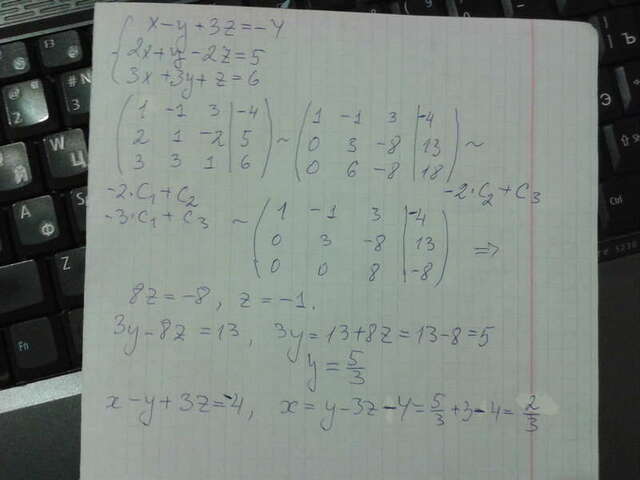 x - y + 3z = -4
2x + y - 2z = 5
3x + 3y + z = 6
(1 -1 3 | -4
2 1 -2 | 5
3 3 1 | 6) ~ (1 -1 3 | -4
0 3 -8 | 13
0 6 -8 | 18) ~
-2·C₁+C₂
-3·C₁+C₃
-2·C₂+C₃
~ (1 -1 3 | -4
0 3 -8 | 13
0 0 8 | -8) ⇒
8z = -8, z = -1.
3y - 8z = 13, 3y = 13 + 8z = 13 - 8 = 5
y = 5/3
x - y + 3z = -4, x = y - 3z - 4 = 5/3 + 3 - 4 = 2/3